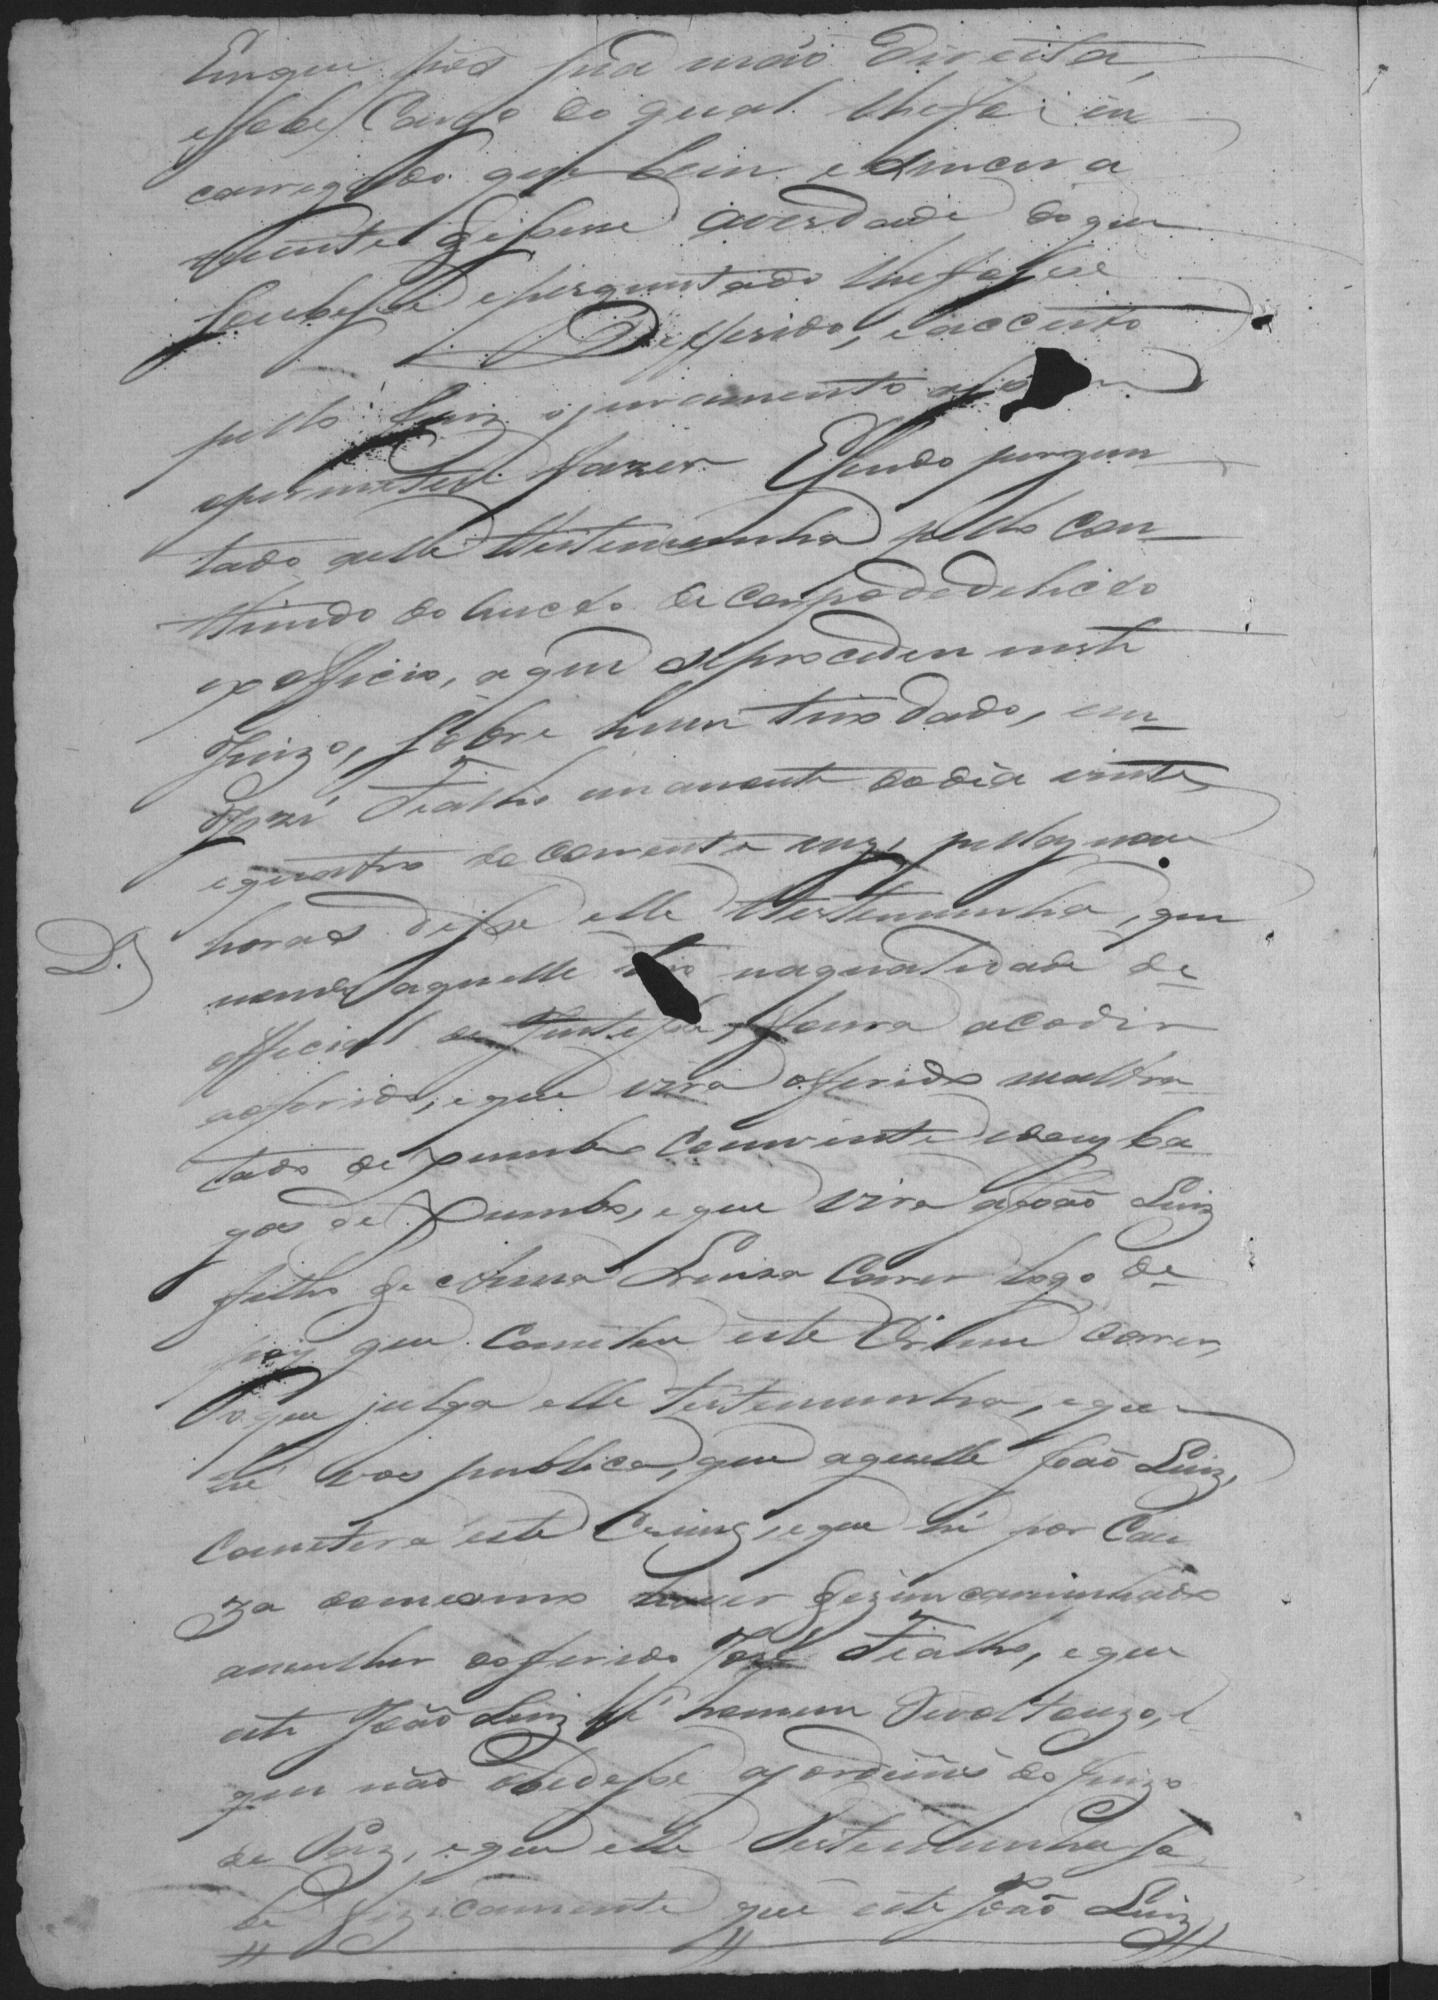 Emque pôs sua mão direita,
e sobe Cargo do qual lhe foi in
carregado que bem e sincera
mente dicesse averdade do que
soubesse e perguntado lhe fosse
Defferido, e acceito
pello Juiz o juramento assim
oprometeu fazer E sendo pergun
tado aelle testemunha pello con
thiudo do Aucto de Corpo dedelicto
ex officio, a que se procedeu neste
Juizo, sobre hum tiro dado, em
Jozé Fialho na noute do dia vinte
e quatro do corrente mez, pellas nove
D.
horas disse elle testemunha, que
naquelle tiro naqualidade de
official de Justissa, fora acodir
aoferido, e que vira oferido maltra
tado de xumbo com vinte e dous ba
gos de Xumbo, e que vira a João Luiz
filho de Anna Luiza Correr logo de
poiz que Cometeu este Crime Correu
o que julga elle testemunha, e que
hé vós publica, que aquelle João Luiz,
Cometera este Crime, e que hé por Cau
za do mesmo haver dezimcaminhado
amulher do ferido José Fialho, e que
este João Luiz hé homem Revoltouzo, e
que não obedesse as ordens do Juizo
de Paz, e que elle Testemunha sa
be que este João Luiz